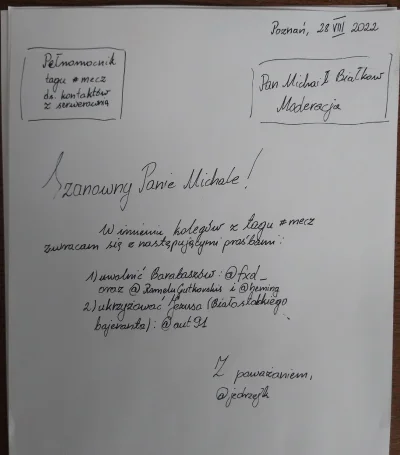 Poznań, 28 VIII 2022
Pełnomocnik
tagu #mecz
ds. kontaktów
z serwerownią
Pan Michał Białkow
Moderacja
Szanowny Panie Michale!
W imieniu kolegów z tagu #mecz
zwracam się z następującymi prośbami:
1) uwolnić Barabaszów: @fxd_
oraz @RameluGutkovskis i @heming
2) ukrzyżować Jezusa (Białostockiego
bajeranta): @aut91
Z poważaniem,
@jedrzejk